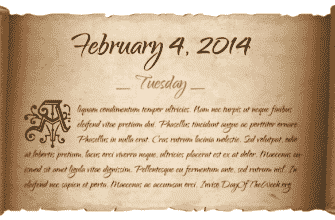 February 4, 2014
Tuesday
Aliquam condimentum tempor ultricies. Nam nec turpis at neque finibus
eleifend vitae pretium dui. Phasellus tincidunt augue ac porttitor ornare.
Phasellus in nulla erat. Cras rutrum lacinia molestie. Sed volutpat, odio
at lobortis pretium, lacus orci viverra neque, ultricies placerat est ex at dolor. Maecenas eu
smod sit amet ligula vitae dignissim. Pellentesque eu fermentum ante, sed rutrum nisl. In
eleifend nec sapien et porta. Maecenas ac accumsan orci. Invite.DayOfTheWeek.org